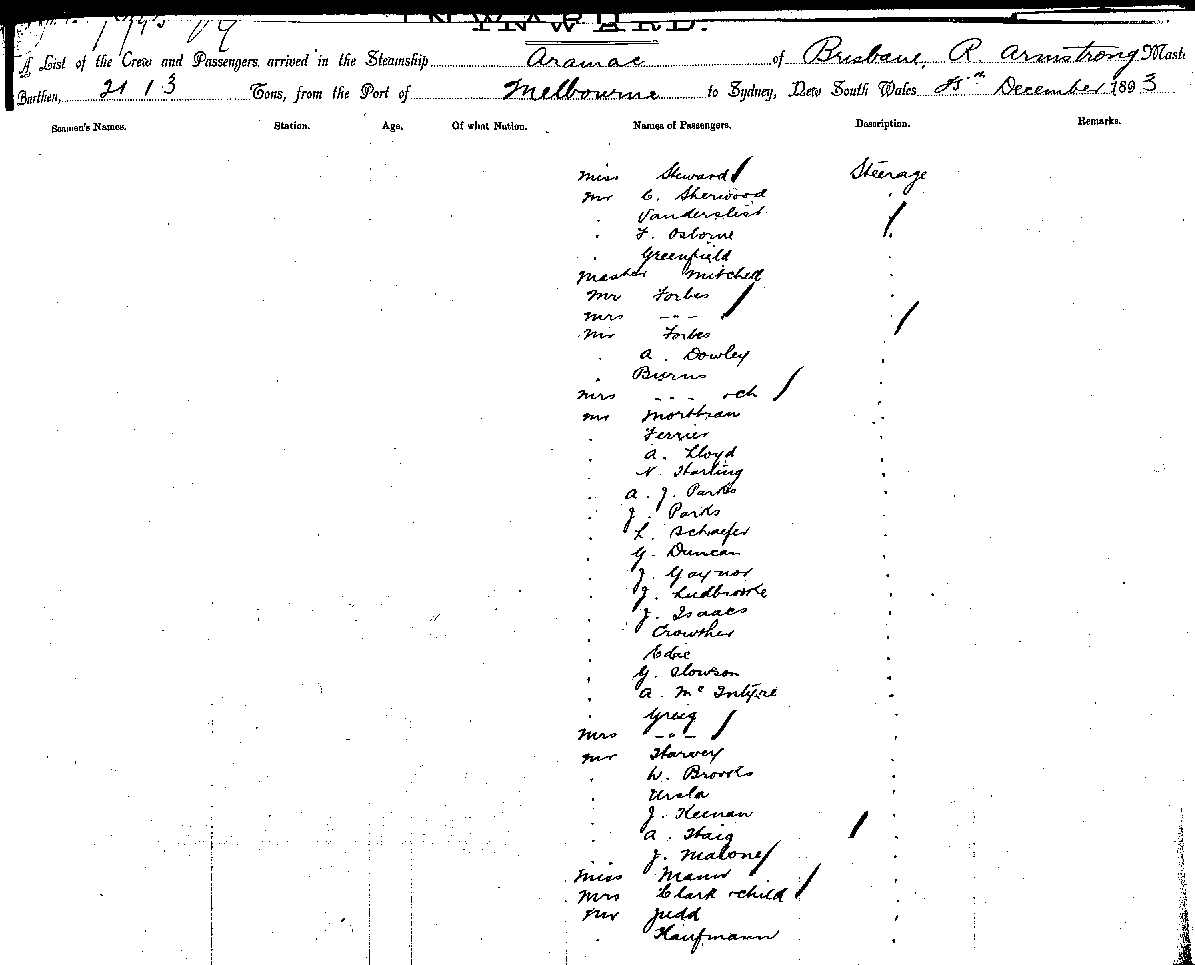 INWARD.
A List of the Crew and Passengers arrived in the Steamship Aramac of Brisbane, R. Armstrong Maste
Burthen, 2113 Tons, from the Port of Melbourne to Sydney, New South Wales December 1893
Seamen's Names. Station. Age. Of what Nation. Names of Passengers. Description. Remarks.
Miss Steward Steerage
Mr C. Sherwood
F. Osborne
Greenfield
Master Mitchell
Mr Forbes
Mrs - " -
Mr Forbes
A. Dowley
Burns
Mrs - - - + ch
Mr
Ferrier
A. Lloyd
N. Harling
A. J. Parks
J. Parks
L. Schaefer
G. Duncan
J. Gaynor
J. Ludbrooke
J. Isaacs
Crowther
Edie
G. Slowson
A. Mc Intyre
Greig
Mrs - " -
Mr Harvey
W. Brooks
Ursla
J. Keenan
A. Haig
J. Malone
Miss Mann
Mrs Clark + child
Mr Judd
Kaufmann